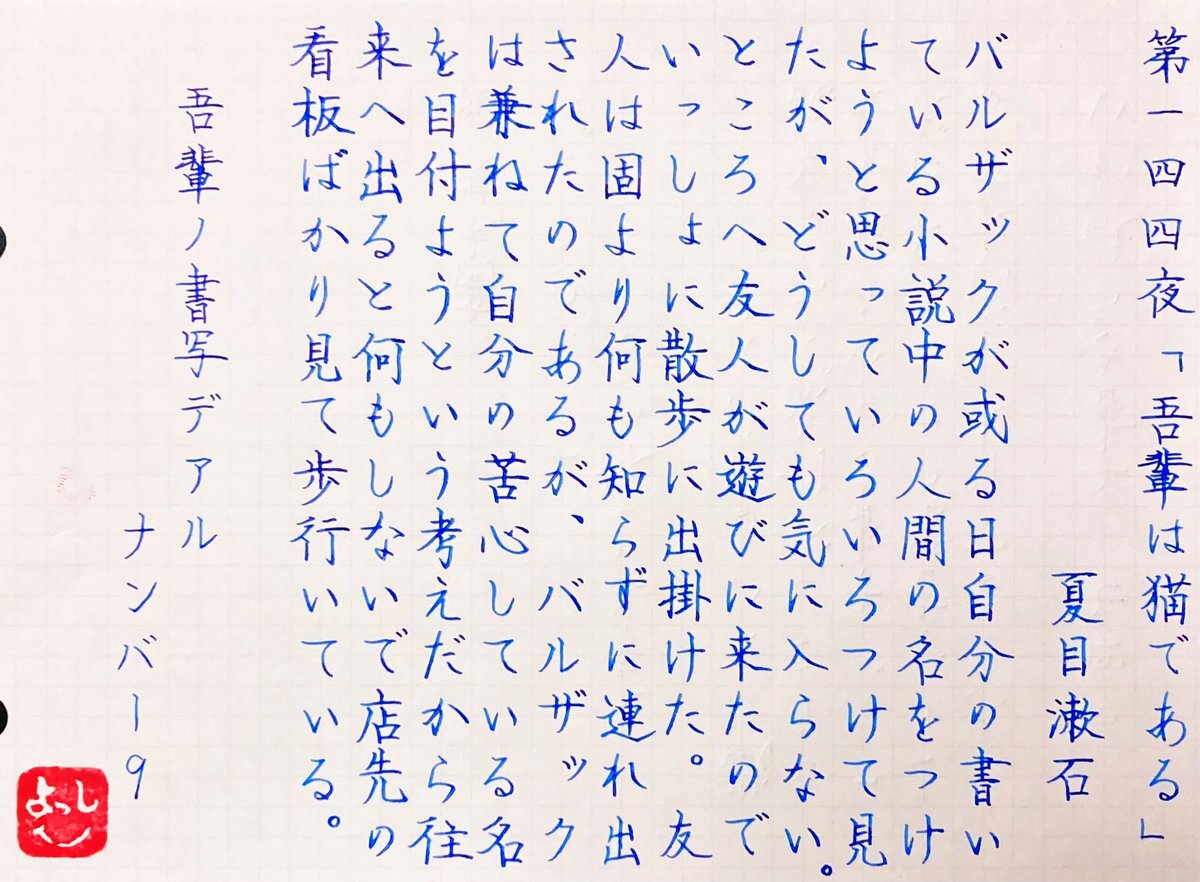 第一四四夜「吾輩は猫である」
夏目漱石
バルザックが或る日自分の書い
ている小説中の人間の名をつけ
ようと思っていろいろつけて見
たが、どうしても気に入らない。
ところへ友人が遊びに来たので
いっしょに散歩に出掛けた。友
人は固より何も知らずに連れ出
されたのであるが、バルザック
は兼ねて自分の苦心している名
を目付ようという考えだから往
来へ出ると何もしないで店先の
看板ばかり見て歩行いている。
吾輩ノ書写デアル
ナンバー9
よっし